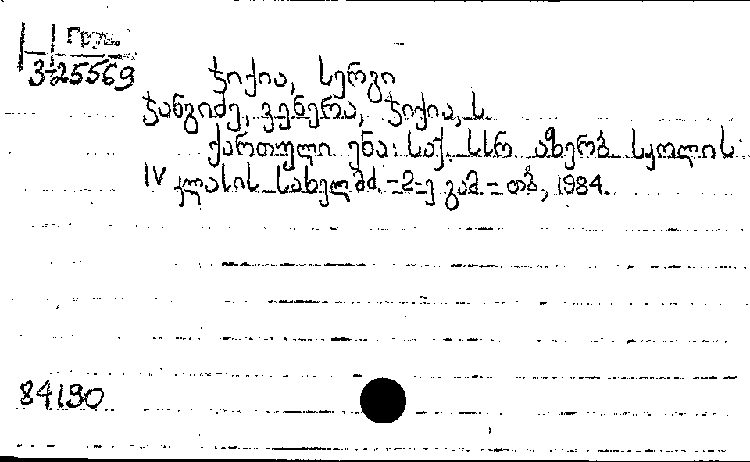 Груз.
3-25569
ჭიქია, სერგი
ჭანგიძე, ვენერა, ჭიქია, ს.
ქართული ენა: საქ. სსრ აზერბ. სკოლის
IV კლასის სახელმძ. - 2-ე გამ. - თბ., 1984.
84190